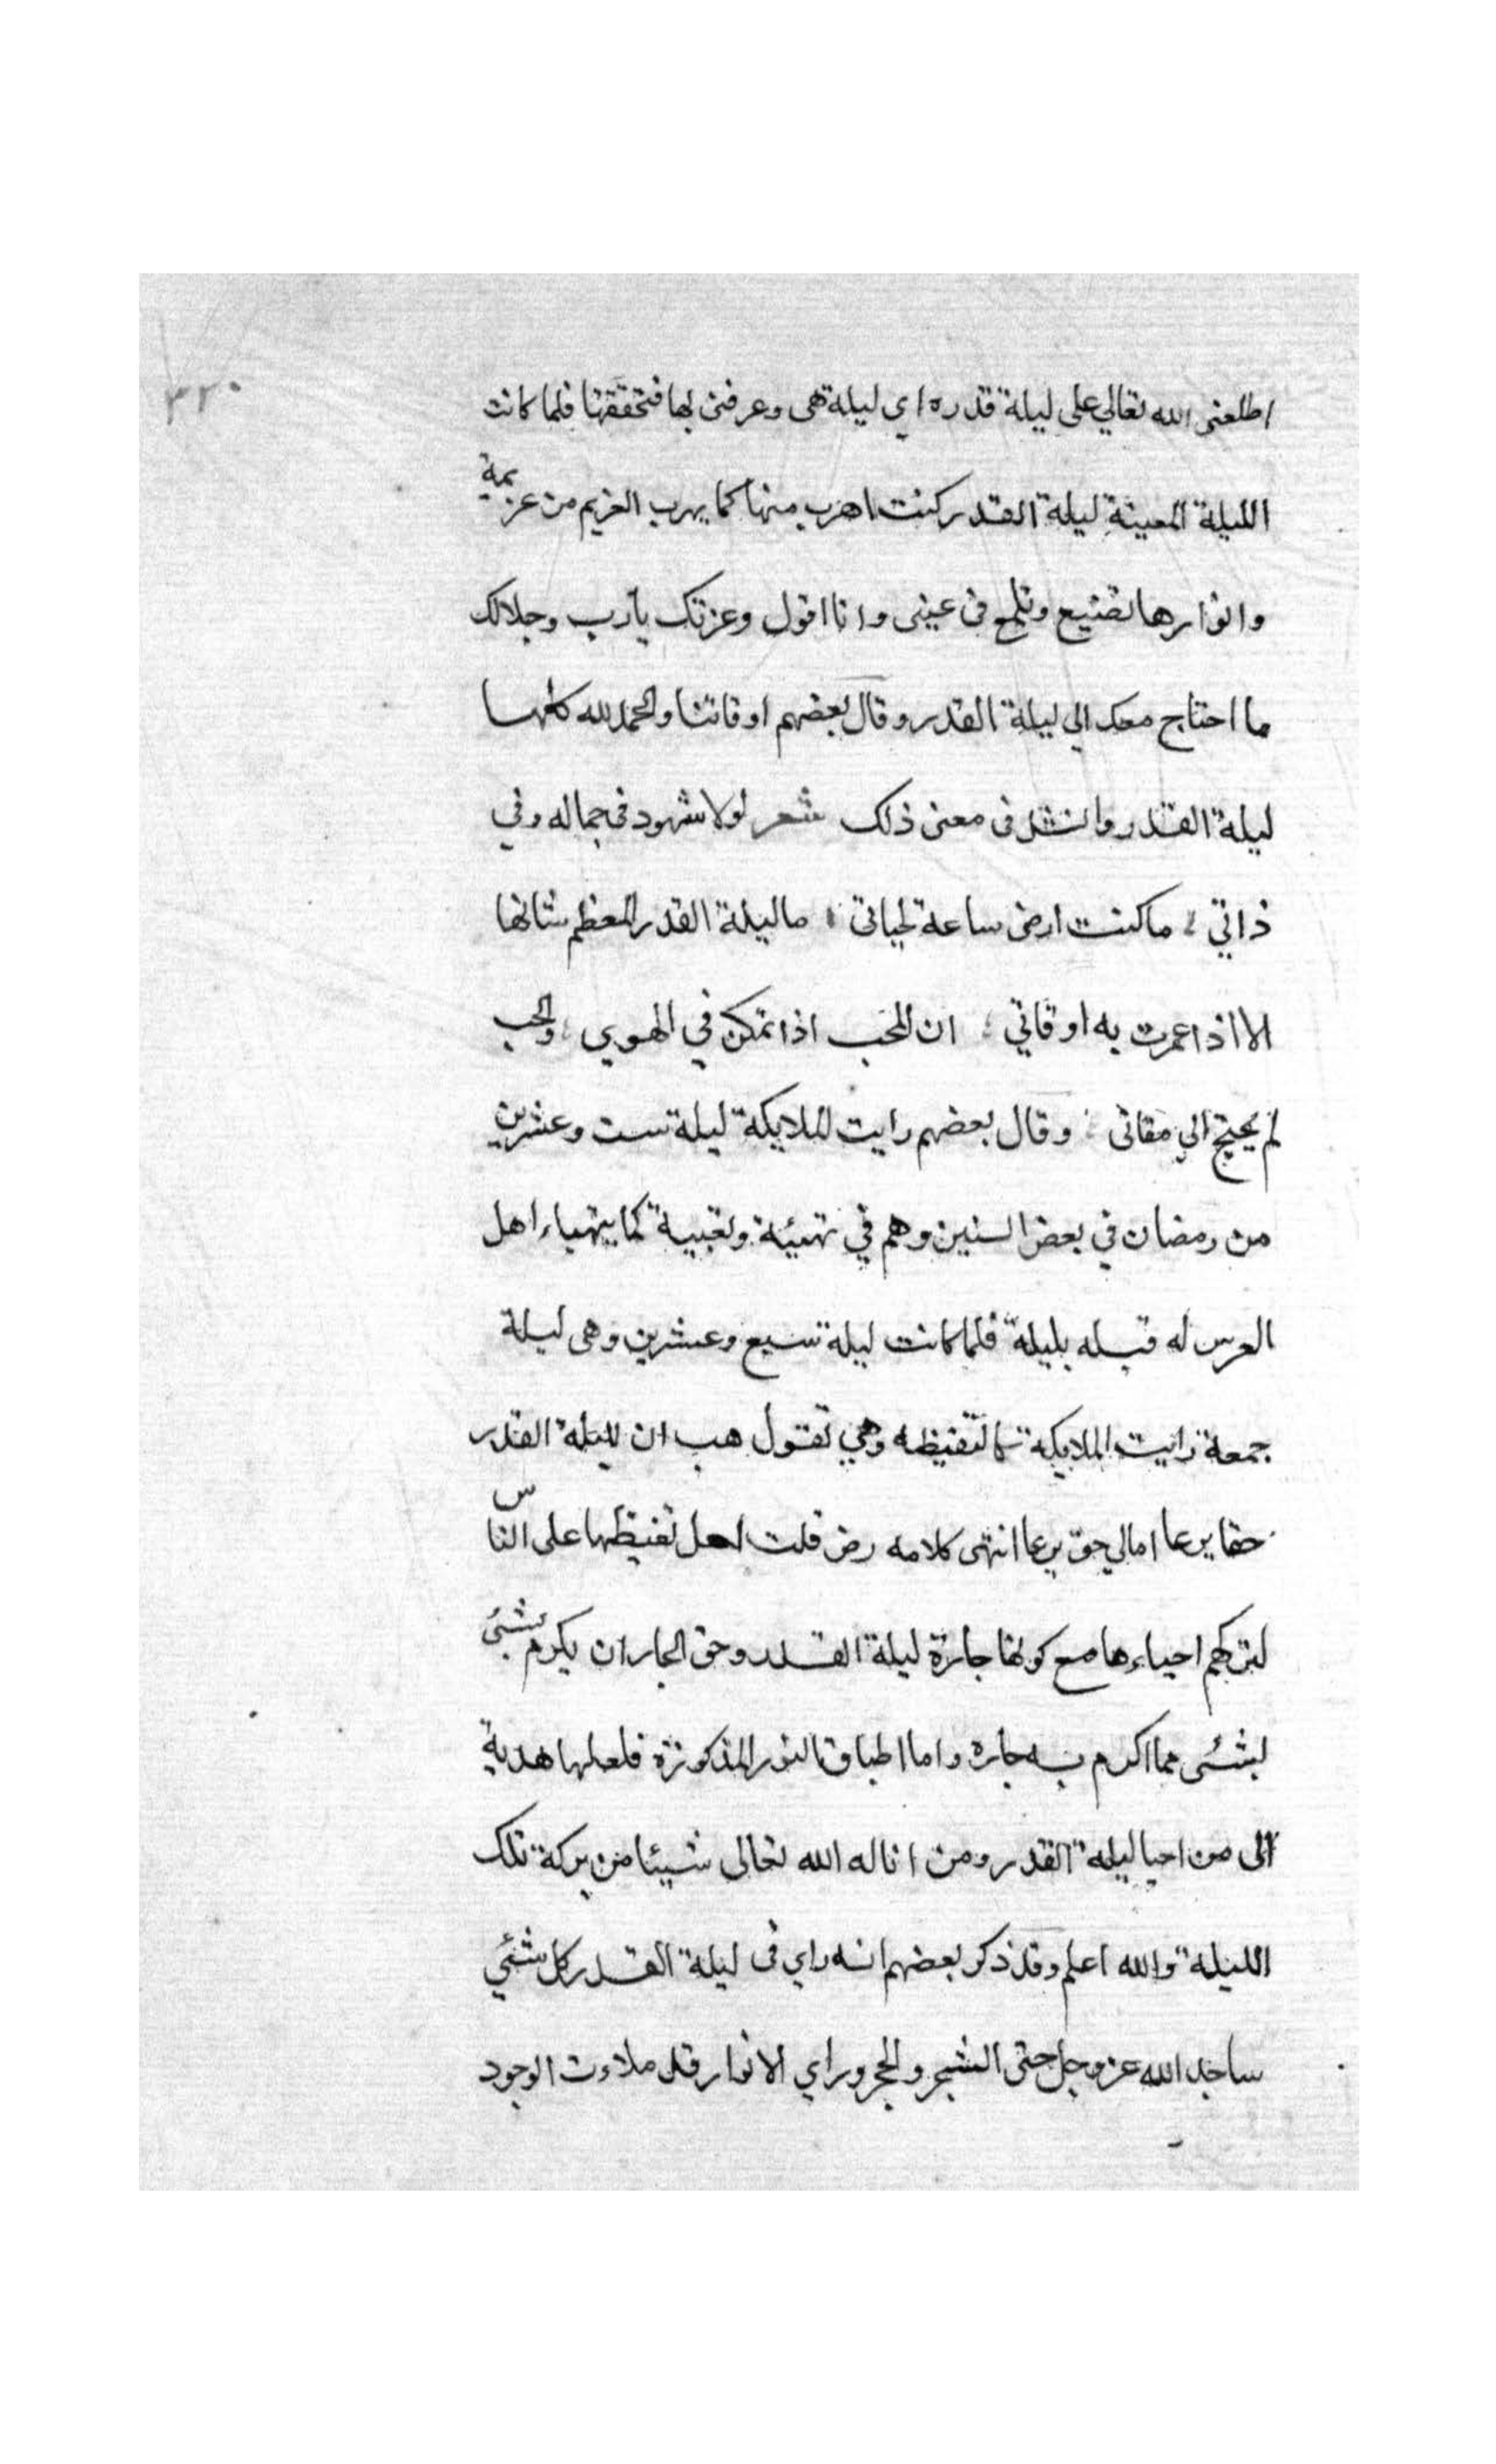 ٣٢٠
اطلعنى الله تعالي على ليلة قدره اي ليلة هى وعرفنى بها فتحققتها فلما كانت
الليلة المعينة ليلة القدر كنت اهرب منها كما يهرب الغريم من غريمه
وانوارها تضيع وتلمع فى عينى وانا اقول وعزتك يارب وجلالك
ما احتاج معك الي ليلة القدر وقال بعضهم اوقاتنا والحمد لله كلها
ليلة القدر وانشد فى معنى ذلك شعر لولا شهود فى جماله وفي
ذاتي ؛ ما كنت ارضى ساعة لحياتى ؛ ما ليلة القدر المعظم شانها
الا اذا عمرت به اوقاتي ؛ ان المحب اذا تمكن في الهوي ؛ والحب
لم يحتج الي مقاتى ؛ وقال بعضهم رايت الملايكة ليلة ست وعشرين
من رمضان في بعض السنين وهم في تهيئة وتعبية كما يتهياء اهل
العرس له قبله بليلة فلما كانت ليلة سبع وعشرين وهى ليلة
جمعة رايت الملايكة وهي تقول هب ان لليلة القدر
حقا يرعا امالي حق يرعا انتهى كلامه رض قلت لعل تغيظها على الناس
لتركهم احياءها مع كونها جارة ليلة القدر وحق الجار ان يكرم بشئى
لبشئى مما اكرم به جاره واما اطباق النور المذكورة فلعلها هدية
الى من احيا ليلة القدر ومن اناله الله تعالى شيئا من بركة تلك
الليلة والله اعلم وقد ذكر بعضهم انه راي فى ليلة القدر كل شئي
ساجد الله عز وجل حتى الشجر والحجر وراي الانوار قد ملاءت الوجود